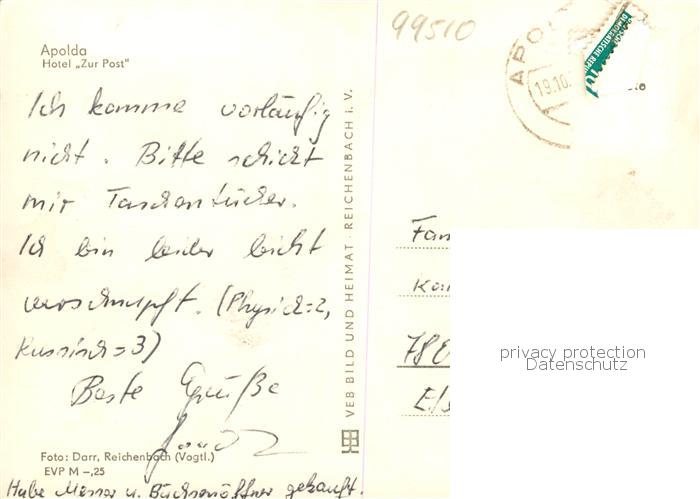 Apolda
Hotel „Zur Post"
Ich komme vorläufig
nicht. Bitte schickt
mir Taschentücher.
Ich bin leider leicht
verschnupft. (Physik=2,
Russisch=3)
Beste Grüße
Foto: Darr, Reichenbach (Vogtl.)
EVP M –,25
Habe Messer u. Büchsenöffner gekauft.
VEB BILD UND HEIMAT · REICHENBACH i. V.
99510
APOL
19.10.
DEMOKRATISCHE REPU
10
Fam
Kar
Els
privacy protection
Datenschutz